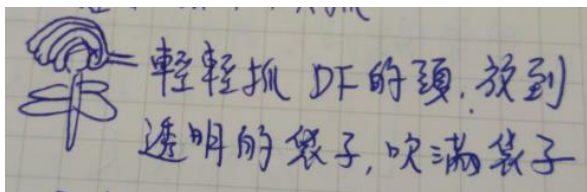 輕輕抓 DF的頭, 放到
透明的袋子, 吹滿袋子